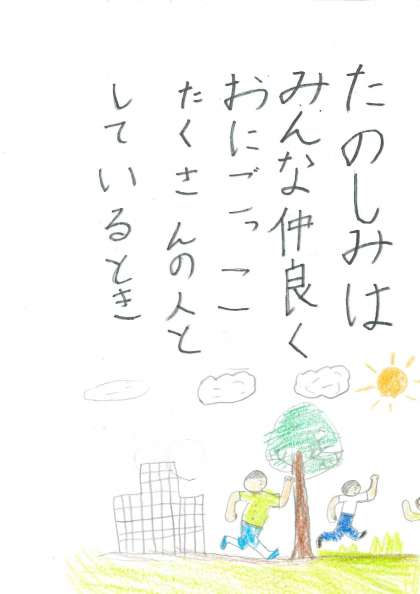 たのしみは
みんな仲良く
おにごっこ
たくさんの人と
しているとき